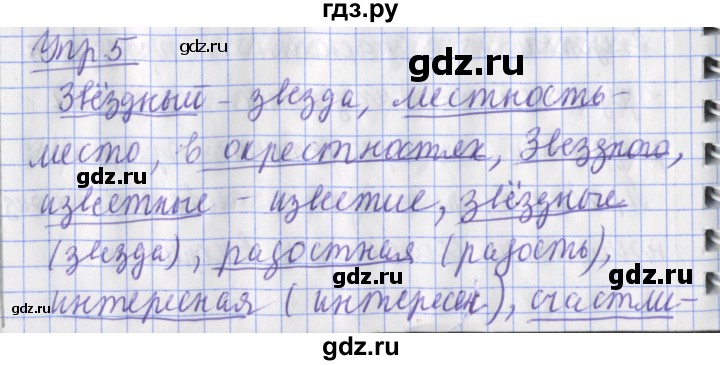 гдз.ру
Упр 5
gdz.ru
gdz.ru
Звёздный – звезда, местность –
место, в окрестностях, Звездного,
известные – известие, звёздные
(звезда), радостная (радость),
gdz.ru
gdz.ru
интересная (интересен), счастли-
gdz.ru